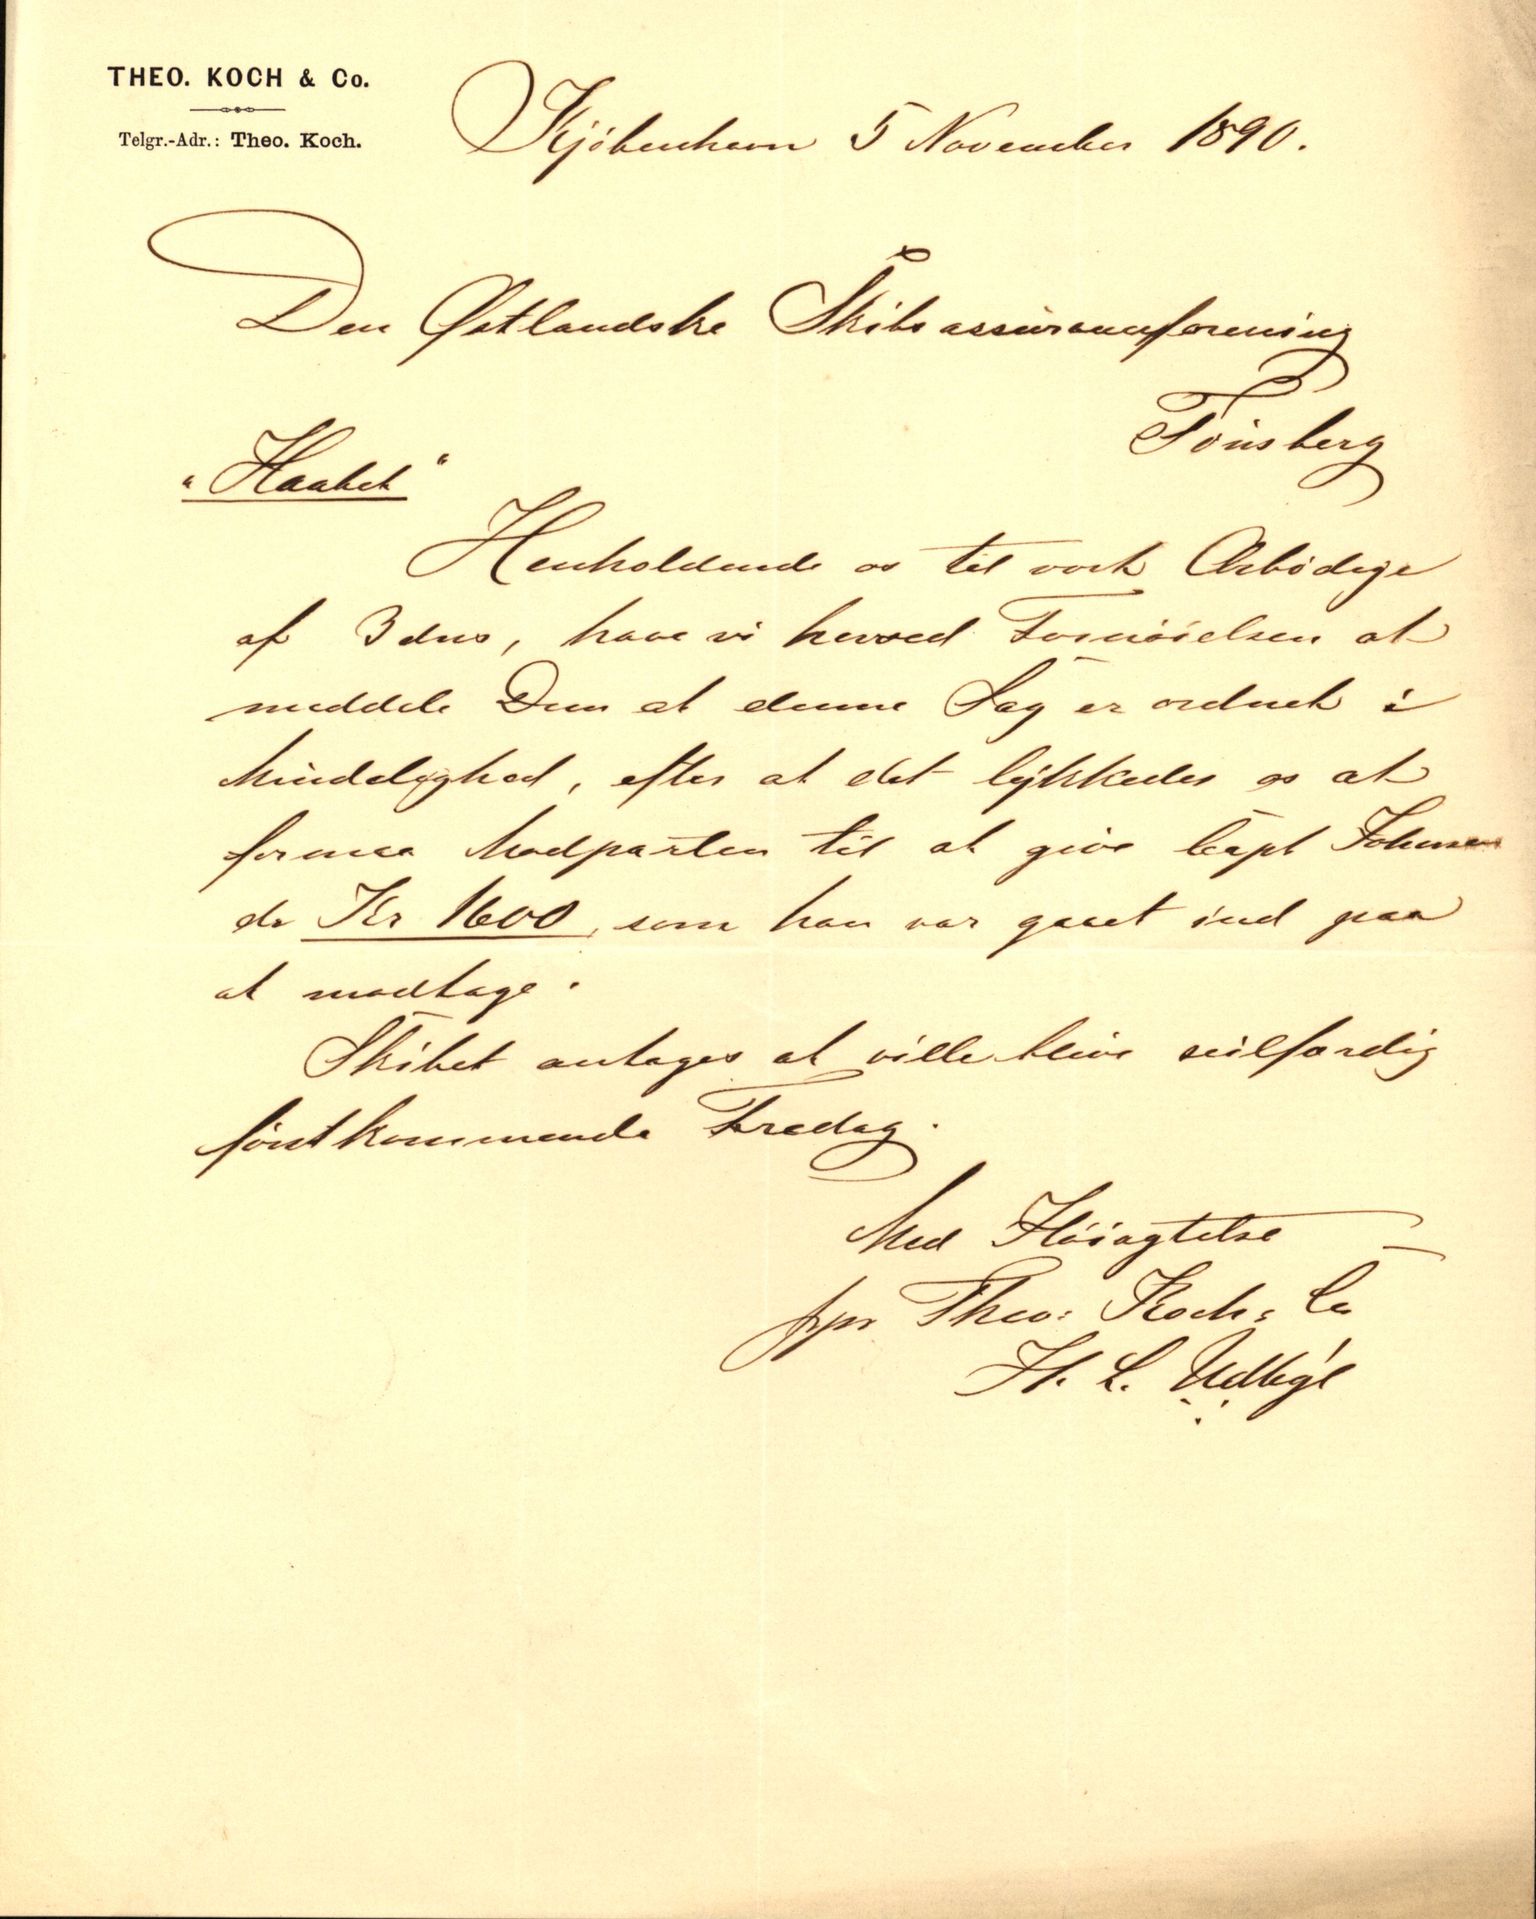 THEO. KOCH & Co.
Telgr.-Adr.: Theo. Koch.
Kjöbenhavn 5 November 1890.
Den Østlandske Skibsassuranceforening
Tönsberg
"Haabet"
Henholdende os til vort Ærbödige
af 3 dns, have vi herved Fornöielsen at
meddele Dem at denne Sag er ordnet i
Mindelighed, efter at det lykkedes os at
formaa Modparten til at give Capt Johnsen
de Kr 1600, som han var gaaet ind paa
at modtage.
Skibet antages at ville blive seilfærdig
förstkommende Fredag.
Med Höiagtelse
ppr Theo: Koch & Co
H. L.